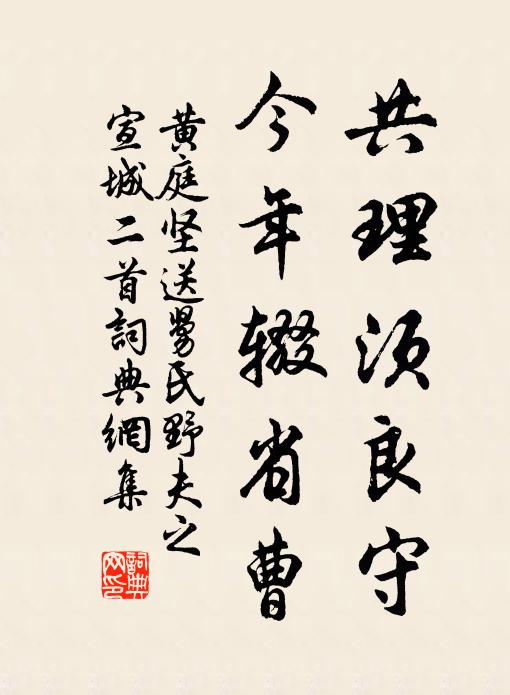 共理须良守
今年辍省曹
黄庭坚送舅氏野夫之
宣城二首詞典網集
詞典
网印